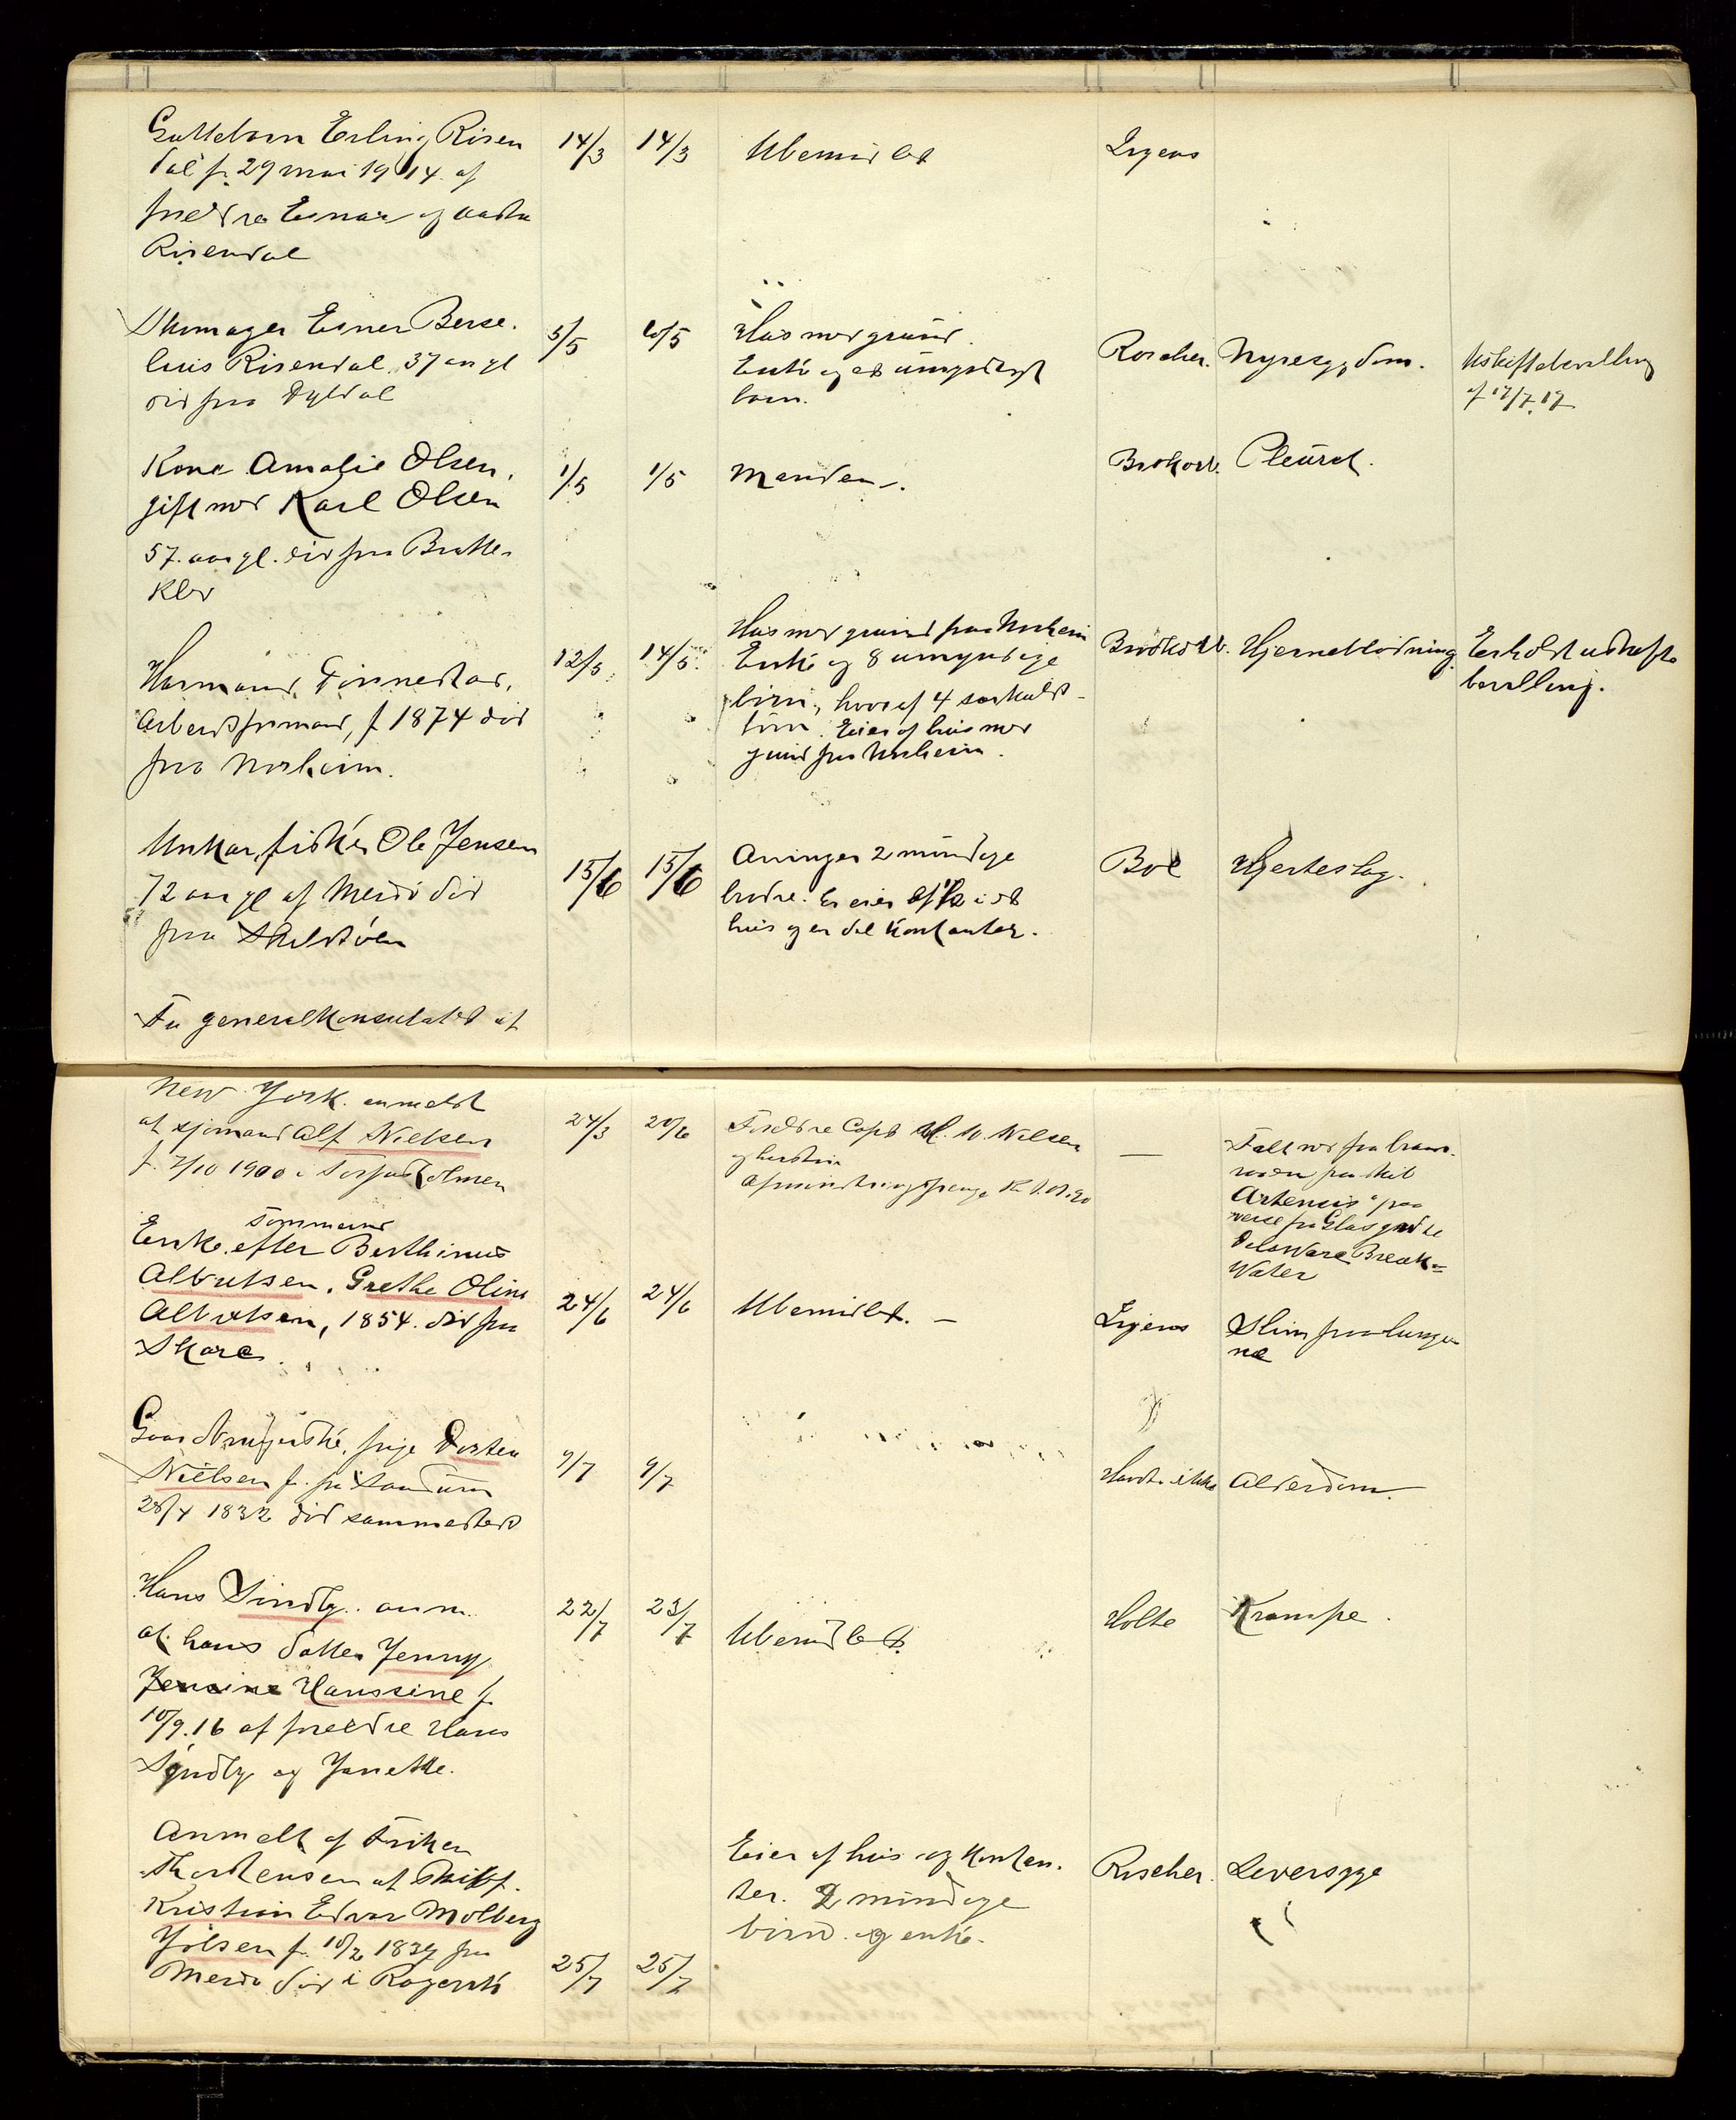 Guttebarn Erling Risen
dal f. 29 mai 1914 af
foreldre Einar og Aasta
Risendal
14/3 14/3
Ubemidlet
Ingens
Skomager Einer Berse.
lius Risendal, 37 aar gl
død fra Dyldal
5/5 10/5
Hus med grund.
Enke og et umyndigt
barn.
Roscher. Nyresygdom.
Uskiftebevilling
af 17/7 17
Kone Amalie Olsen,
gift med Karl Olsen
57 aar gl. død fra Bratte
klev
1/5 1/5
Manden.
Brokorb. Pleurit.
Hermann Finnestad,
Arbeidsformand, f 1874 død
fra Norheim.
12/5 14/5.
Hus med grund paa Norheim
Enke og 8 umyndige
børn, hvoraf 4 særkulds
børn. Eier af hus med
grund paa Norheim.
Brodkorb. Hjerneblødning
Erholdt uskifte
bevilling.
Unkar, fisker Ole Jensen
72 aar gl af Merdø død
fra
15/6 15/6
Arvinger 2 myndige
brødre. Er eier af 1/2 i et
hus og en del kontanter.
Boe Hjerteslag.
Fra generalkonsulatet i
New York anmeldt
at sjømand Alf Nielsen
f. 7/10 1900 i Torsjusholmen
24/3 20/6
Foreldre Capt M. N. Nilsen
og hustru
—
Falt ned fra bram-
raaen paa skib
"Artemis" paa
reise fra Glasgow til
Delaware Break=
Water
Tømmermand
Enke efter Berthinus
Albretsen, Grethe Oline
Albretsen, 1854. død fra
Skare
24/6 24/6
Ubemidlet. —
Ingens
Slim paa lunge
ne
Gaardbrugerske, pige Dorthea
Nielsen f. paa Sandum
28/4 1832 død sammested
9/7 9/7
Havde ikke Alderdom.
Hans Sindby anm.
at hans datter Jenny
Jensine Hanssine f.
10/9.16 af foreldre Hans
Syndby og Janette.
22/7 23/7
Ubemidlet.
Holte Krampe.
Anmelt af Frøken
Thorstensen at Skibsf.
Kristian Edvar Molberg
Jølsen f. 10/2 1839 fra
Merdø død i Ragervik
25/7 25/7
Eier af hus og kontan-
ter. 2 myndige
børn og enke.
Roscher. Leversyge